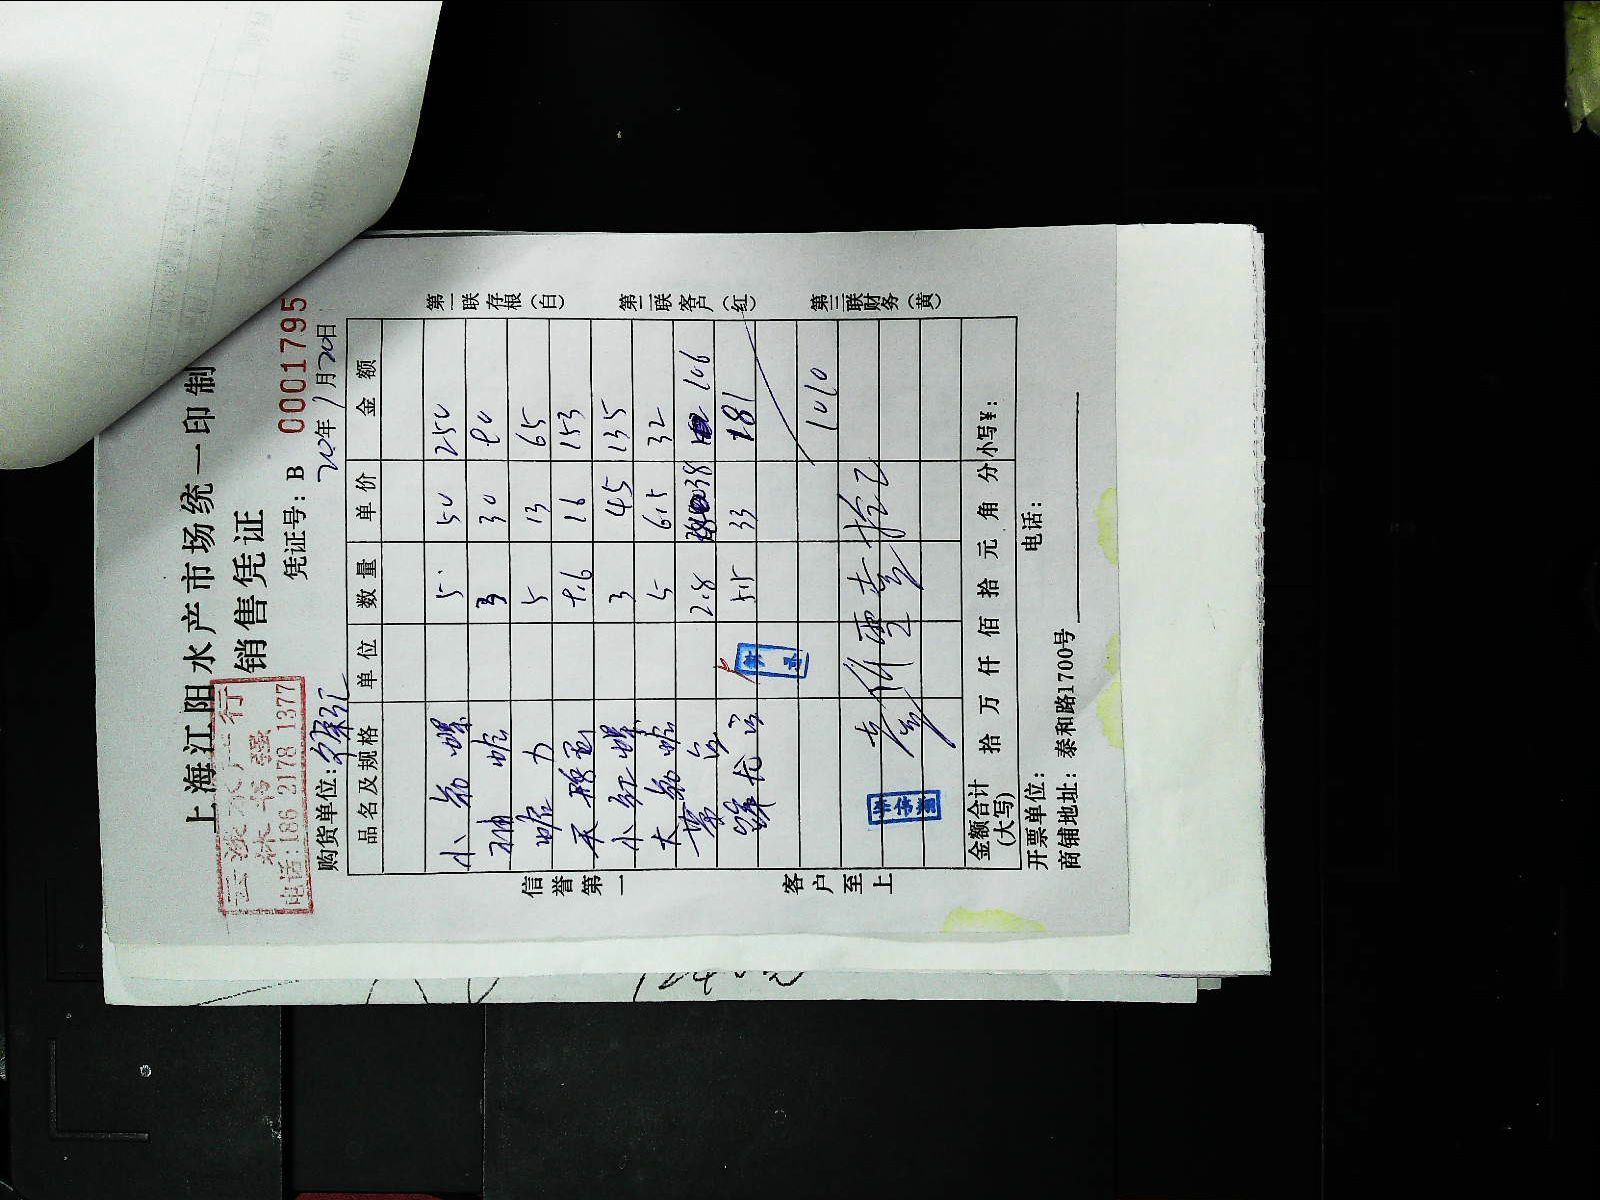 上海江阳水产市场统一印制
销售凭证
凭证号：B 0001795
水产行
电话:186 2178 1377
购货单位：
年 1月20日
品名及规格 单位 数量 单价 金额
小 螺 5 50 250
3 30 90
蛏 5 13 65
9.6 16 153
小 红 螺 3 45 135
大 5 6.5 32
2.8 38 106
5.5 33 181
1010
壹仟零壹拾元
金额合计(大写) 拾 万 仟 佰 拾 元 角 分 小写¥：
开票单位： 电话：
商铺地址：泰和路1700号
信誉第一
客户至上
第一联存根（白）
第二联客户（红）
第三联财务（黄）